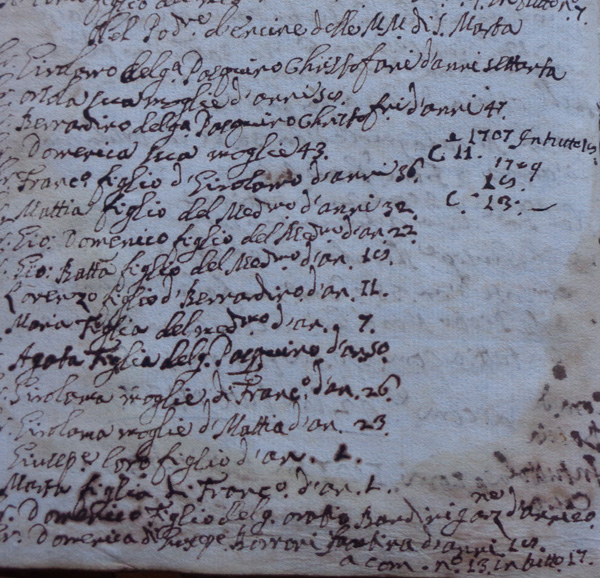 Nel Pod.re d'Encine delle MM di S. Marta
Girolamo del q.m Pasquino Christofani d'anni settanta
sua moglie d'anni 50.
Bernardino del q.m Pasquino Christofani d'anni 47.
Domenica sua moglie 43.
1707 In tutto 15
C. 11. 1709
Franc.o figlio d'Girolamo d'anni 36.
15
Mattia figlio del Med.mo d'anni 32.
C. 13. —
Gio: Domenico figlio del Med.mo d'an. 22
Gio: Batta figlio del Med.mo d'an. 15
Lorenzo figlio d'Bernardino d'an. 11.
Maria figlia del med.mo d'an. 7.
Agata figlia del q. Pasquino d'an. 50.
Girolama moglie di Franc.o d'an. 26
Girolama moglie d'Mattia d'an. 23
Giusepe loro figlio d'an. 1.
Marta figlia di Franc.o d'an. 1.
Domenico figlio del q.
Domenica di Giusepe d'anni 15.
a com. n.o 13. In tutto 17.